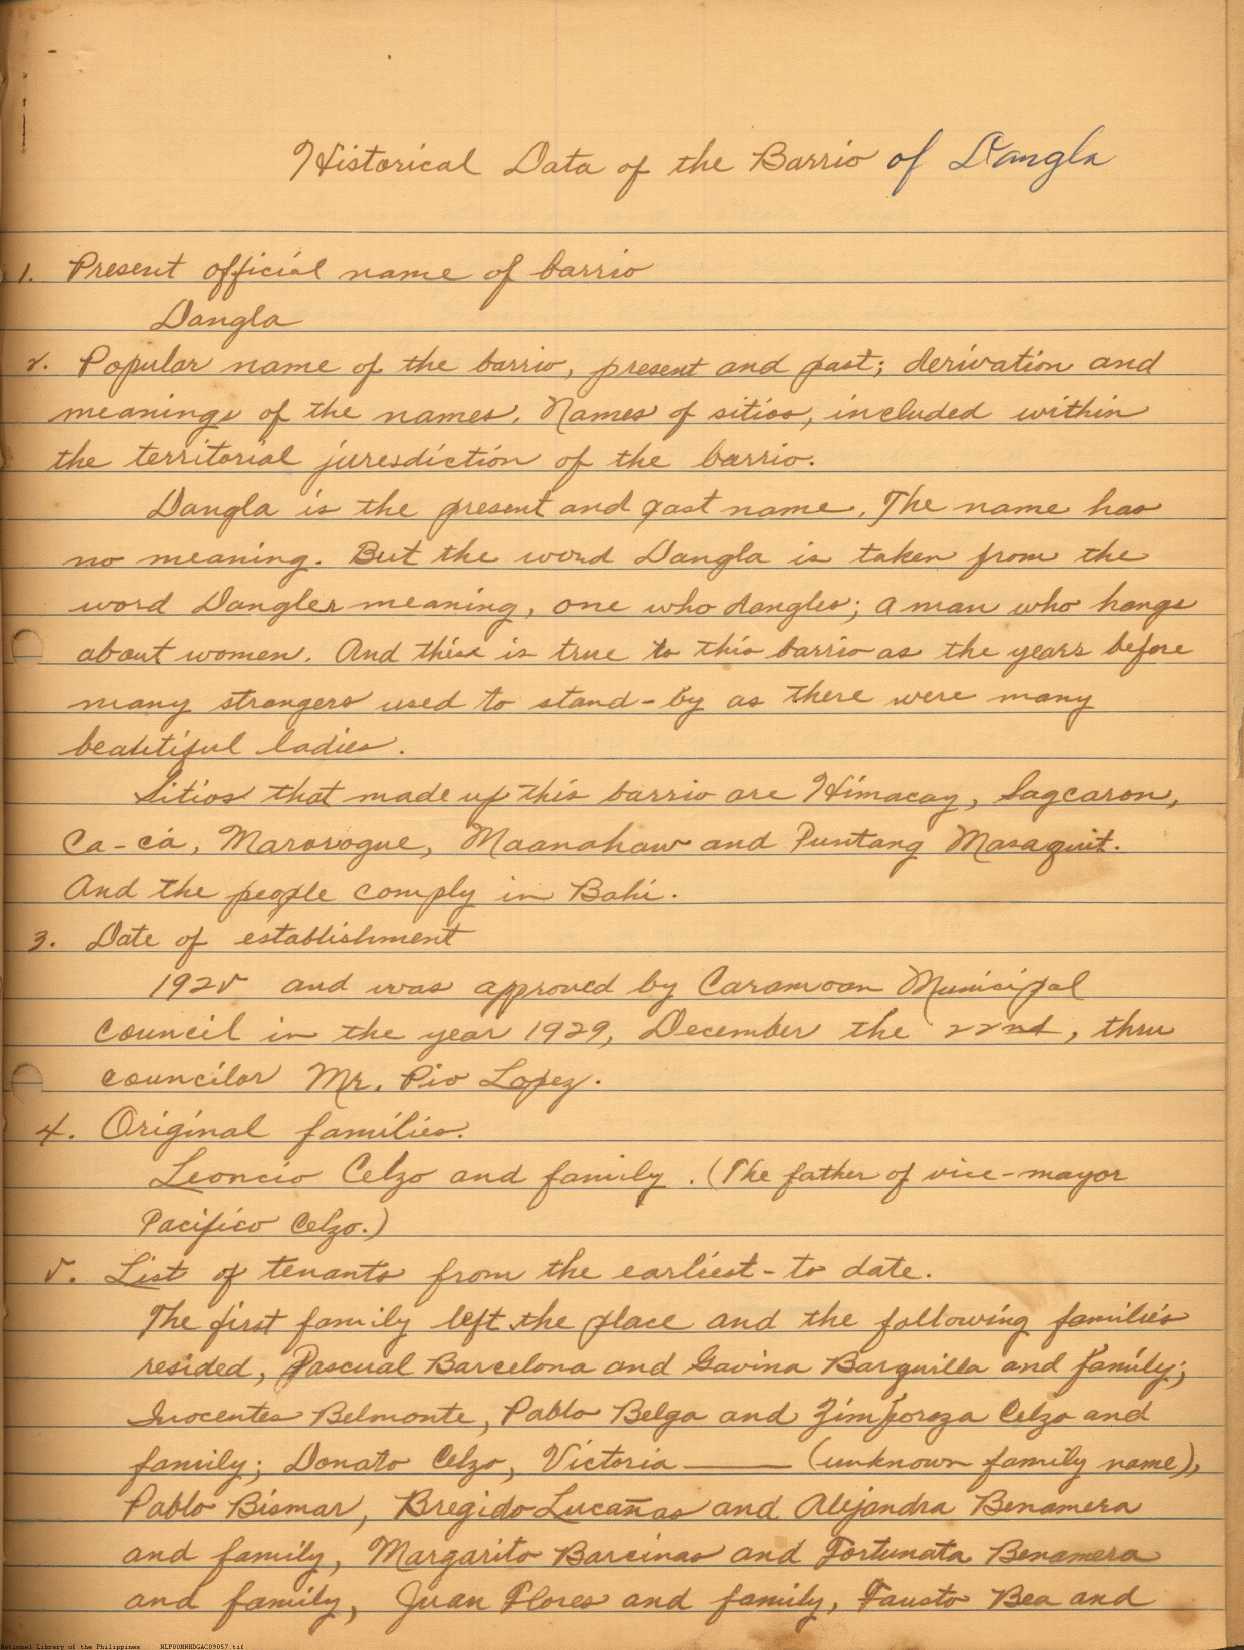 Historical Data of the Barrio of Dangla
1. Present official name of barrio
Dangla
2. Popular name of the barrio, present and past; derivation and
meanings of the names. Names of sitios, included within
the territorial juresdiction of the barrio.
Dangla is the present and past name. The name has
no meaning. But the word Dangla is taken from the
word Dangler meaning, one who dangles; a man who hangs
about women. And this is true to this barrio as the years before
many strangers used to stand-by as there were many
beautiful ladies.
Sitios that made up this barrio are Himacay, Sagcaron,
Ca-ca, Mararogue, Maanahaw and Puntang Masaquit.
And the people comply in Bahi.
3. Date of establishment
1925 and was approved by Caramoan Municipal
Council in the year 1929, December the 22nd, thru
councilor Mr. Pio Lopez.
4. Original families.
Leoncio Celzo and family. (The father of vice-mayor
Pacifico Celzo.)
5. List of tenants from the earliest-to date.
The first family left the place and the following families
resided, Pascual Barcelona and Gavina Barquilla and family;
Inocentes Belmonte, Pablo Belga and Celzo and
family; Donato Celzo, Victoria ——— (unknown family name),
Pablo Bismar, Bregido Lucañas and Alejandra Benamera
and family, Margarito Barcinas and Fortunata Benamera
and family, Juan Flores and family, Fausto Bea and
National Library of the Philippines NLP00MNHDGAC09057.tif